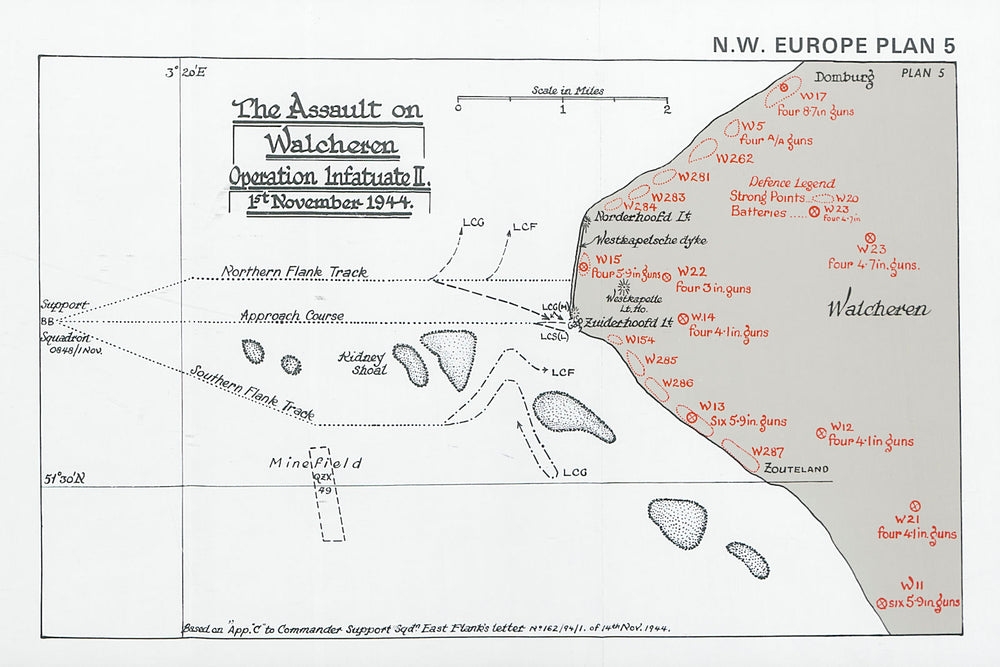 N.W. EUROPE PLAN 5
PLAN 5
3° 20'E
The Assault on
Walcheren
Operation Infatuate II.
1st November 1944.
Scale in Miles
0 1 2
Domburg
W17
four 8·7in guns
W5
four A/A guns
W262
W281
W283
W284
Defence Legend
Strong Points.... W20
Batteries ..... W23
four 4·7in
Norderhoofd Lt
Westkapelsche dyke
W23
four 4·7in. guns.
W15
four 5·9in guns
W22
four 3 in. guns
Westkapelle
Lt. Ho.
Walcheren
LCG
LCF
Northern Flank Track
Support
BB
Squadron
0848/1 Nov.
Approach Course
LCG(M)
LCS(L)
Zuiderhoofd Lt
W.14
four 4·1in. guns
W154
W285
W286
Kidney
Shoal
LCF
Southern Flank Track
W13
Six 5·9in. guns
W12
four 4·1in guns
W287
Zouteland
Minefield
QZX
49
LCG
51°30'N
W21
four 4·1in. guns
W11
six 5·9in. guns
Based on "App. "C" to Commander Support Sqdn. East Flank's letter No 162/94/1. of 14th Nov. 1944.